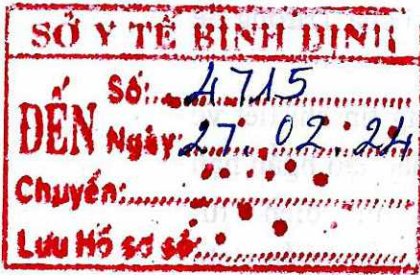 SỞ Y TẾ BÌNH ĐỊNH
ĐẾN
Số: 4715
Ngày: 27.02.24
Chuyển:
Lưu Hồ sơ số: